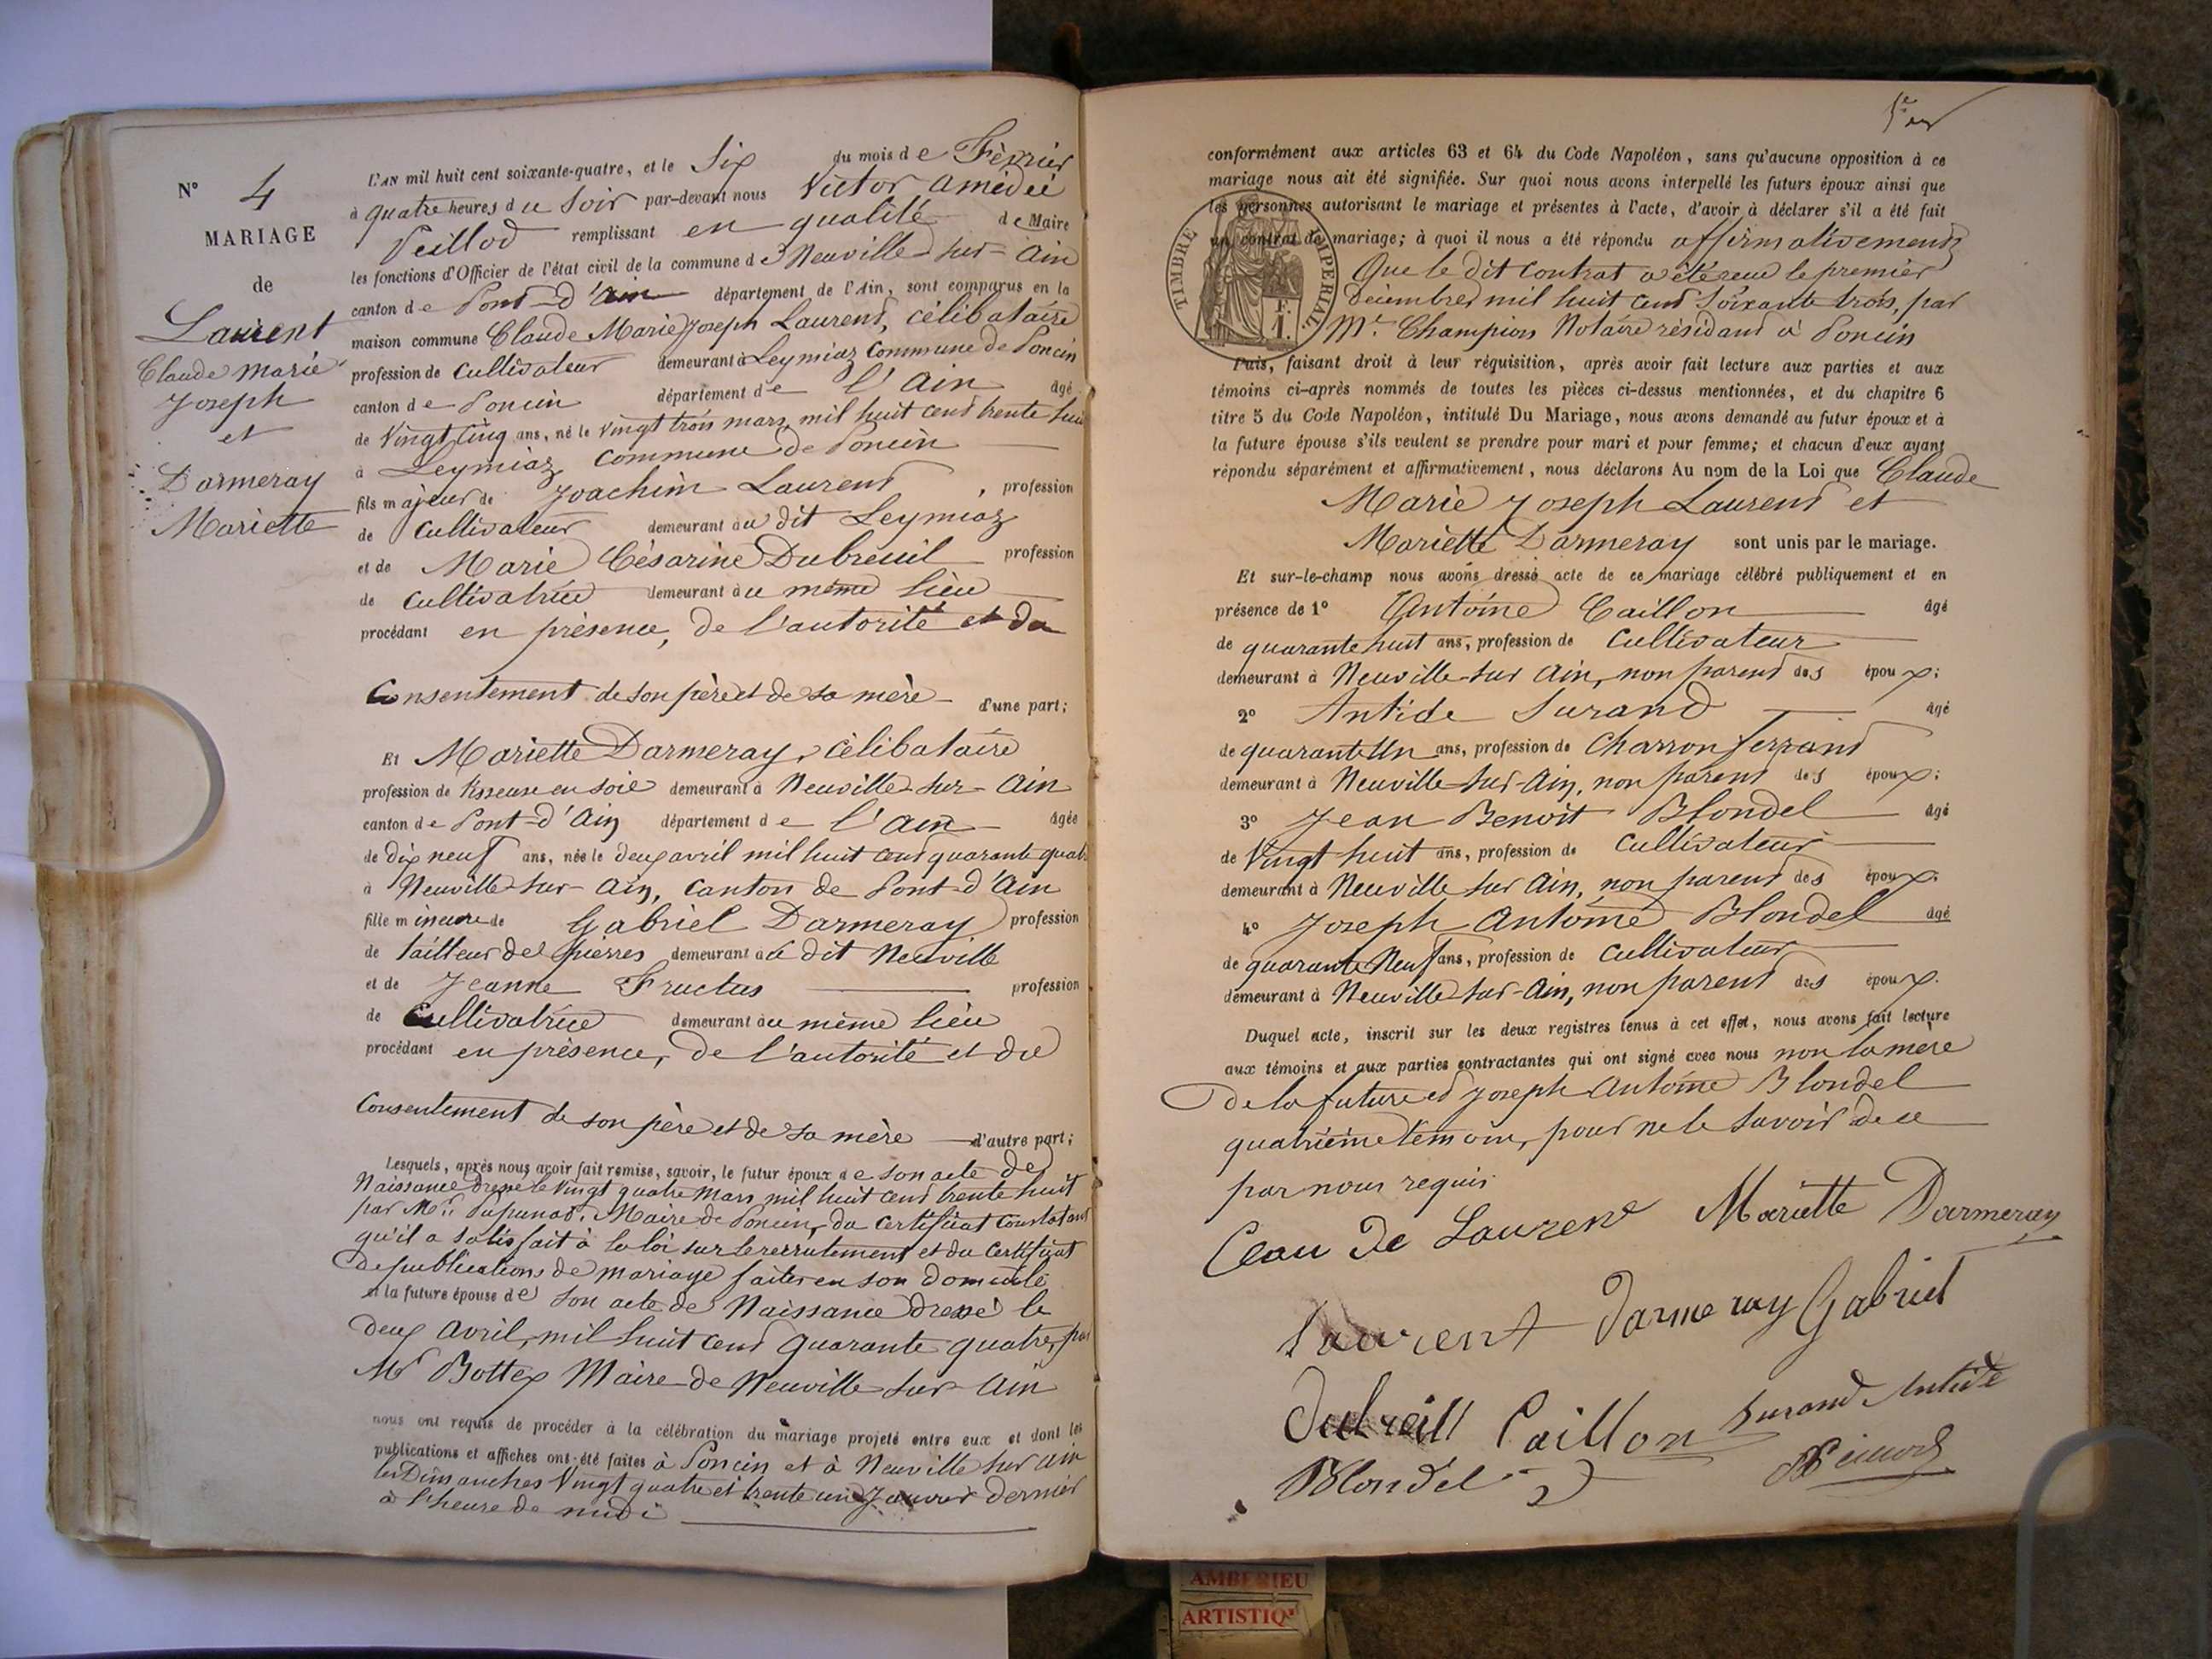 N° 4
MARIAGE
de
Laurent
Claude Marie
Joseph
et
Darmeray
Mariette
L'AN mil huit cent soixante-quatre, et le Six du mois de Février
à quatre heures du Soir par-devant nous Victor Amédée
Peillod remplissant en qualité de Maire
les fonctions d'Officier de l'état civil de la commune de Neuville-sur-Ain
canton de Pont-d'Ain département de l'Ain, sont comparus en la
maison commune Claude Marie Joseph Laurent, célibataire
profession de Cultivateur demeurant à Leymiaz Commune de Poncin
canton de Poncin département de l'Ain âgé
de Vingt Cinq ans, né le Vingt trois mars mil huit cent trente huit
à Leymiaz Commune de Poncin
fils majeur de Joachim Laurent, profession
de Cultivateur demeurant au dit Leymiaz
et de Marie Césarine Dubreuil profession
de Cultivatrice demeurant au même lieu
procédant en présence, de l'autorité et du
Consentement de son père et de sa mère d'une part;
Et Mariette Darmeray, célibataire
profession de tisseuse en soie demeurant à Neuville-sur-Ain
canton de Pont-d'Ain département de l'Ain âgée
de dix neuf ans, née le deux avril mil huit cent quarante quatre
à Neuville-sur-Ain, canton de Pont-d'Ain
fille mineure de Gabriel Darmeray profession
de tailleur de pierres demeurant au dit Neuville
et de Jeanne Fructus profession
de Cultivatrice demeurant au même lieu
procédant en présence, de l'autorité et du
Consentement de son père et de sa mère d'autre part;
Lesquels, après nous avoir fait remise, savoir, le futur époux de son acte de
Naissance dressé le Vingt quatre Mars mil huit cent trente huit
par Mr Maire de Poncin, du Certificat Constatant
qu'il a satisfait à la loi sur le recrutement et du Certificat
de publications de mariage faites en son domicile
et la future épouse de son acte de Naissance dressé le
deux Avril, mil huit cent quarante quatre, par
Mr Bottex Maire de Neuville sur Ain
nous ont requis de procéder à la célébration du mariage projeté entre eux et dont les
publications et affiches ont été faites à Poncin et à Neuville sur Ain
les Dimanches Vingt quatre et trente un Janvier dernier
à l'heure de midi
conformément aux articles 63 et 64 du Code Napoléon, sans qu'aucune opposition à ce
mariage nous ait été signifiée. Sur quoi nous avons interpellé les futurs époux ainsi que
les personnes autorisant le mariage et présentes à l'acte, d'avoir à déclarer s'il a été fait
un contrat de mariage; à quoi il nous a été répondu affirmativement
TIMBRE IMPÉRIAL
1 F.
Que le dit Contrat a été reçu le premier
décembre mil huit cent soixante trois, par
Me Champion Notaire résidant à Poncin
Puis, faisant droit à leur réquisition, après avoir fait lecture aux parties et aux
témoins ci-après nommés de toutes les pièces ci-dessus mentionnées, et du chapitre 6
titre 5 du Code Napoléon, intitulé Du Mariage, nous avons demandé au futur époux et à
la future épouse s'ils veulent se prendre pour mari et pour femme; et chacun d'eux ayant
répondu séparément et affirmativement, nous déclarons Au nom de la Loi que Claude
Marie Joseph Laurent et
Mariette Darmeray sont unis par le mariage.
Et sur-le-champ nous avons dressé acte de ce mariage célébré publiquement et en
présence de 1° Antoine Caillon âgé
de quarante huit ans, profession de Cultivateur
demeurant à Neuville-sur Ain, non parent des époux;
2° Antide Surand âgé
de quarante Un ans, profession de Charron ferrant
demeurant à Neuville-sur-Ain, non parent des époux;
3° Jean Benoit Blondel âgé
de Vingt huit ans, profession de Cultivateur
demeurant à Neuville sur Ain, non parent des époux.
4° Joseph Antoine Blondel âgé
de quarante Neuf ans, profession de Cultivateur
demeurant à Neuville-sur-Ain, non parent des époux.
Duquel acte, inscrit sur les deux registres tenus à cet effet, nous avons fait lecture
aux témoins et aux parties contractantes qui ont signé avec nous non la mère
de la future et Joseph Antoine Blondel
quatrième témoin, pour ne le savoir de ce
par nous requis
Laurent Mariette Darmeray
Laurent Darmeray Gabriel
Dubreill Caillon Surand Antide
Blondel
AMBERIEU
ARTISTIQ